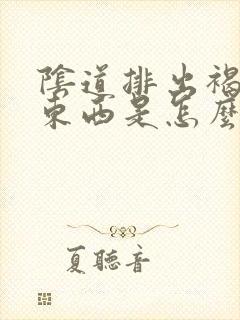 陰道排出褐
東西是怎麼
夏聽音